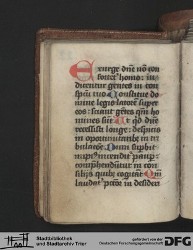 Exurge dñe nõ con
fortet' homo: iu
dicentur gentes in con
spũ tuo Constitue do
mine legislatorẽ super
eos: sciant gẽtes qm̃ ho
mines sũt Ut qd dñe
recessisti longe: despicis
in oportunitatibz in tri
bulacõe Dum supbit
impi'
incendit' paup:
comprehendunt' in con
siliis quibz cogitãt Qm̃
laudat' pctõr in desideri
Stadtbibliothek
und Stadtarchiv Trier
gefördert von der
Deutschen Forschungsgemeinschaft
DFG